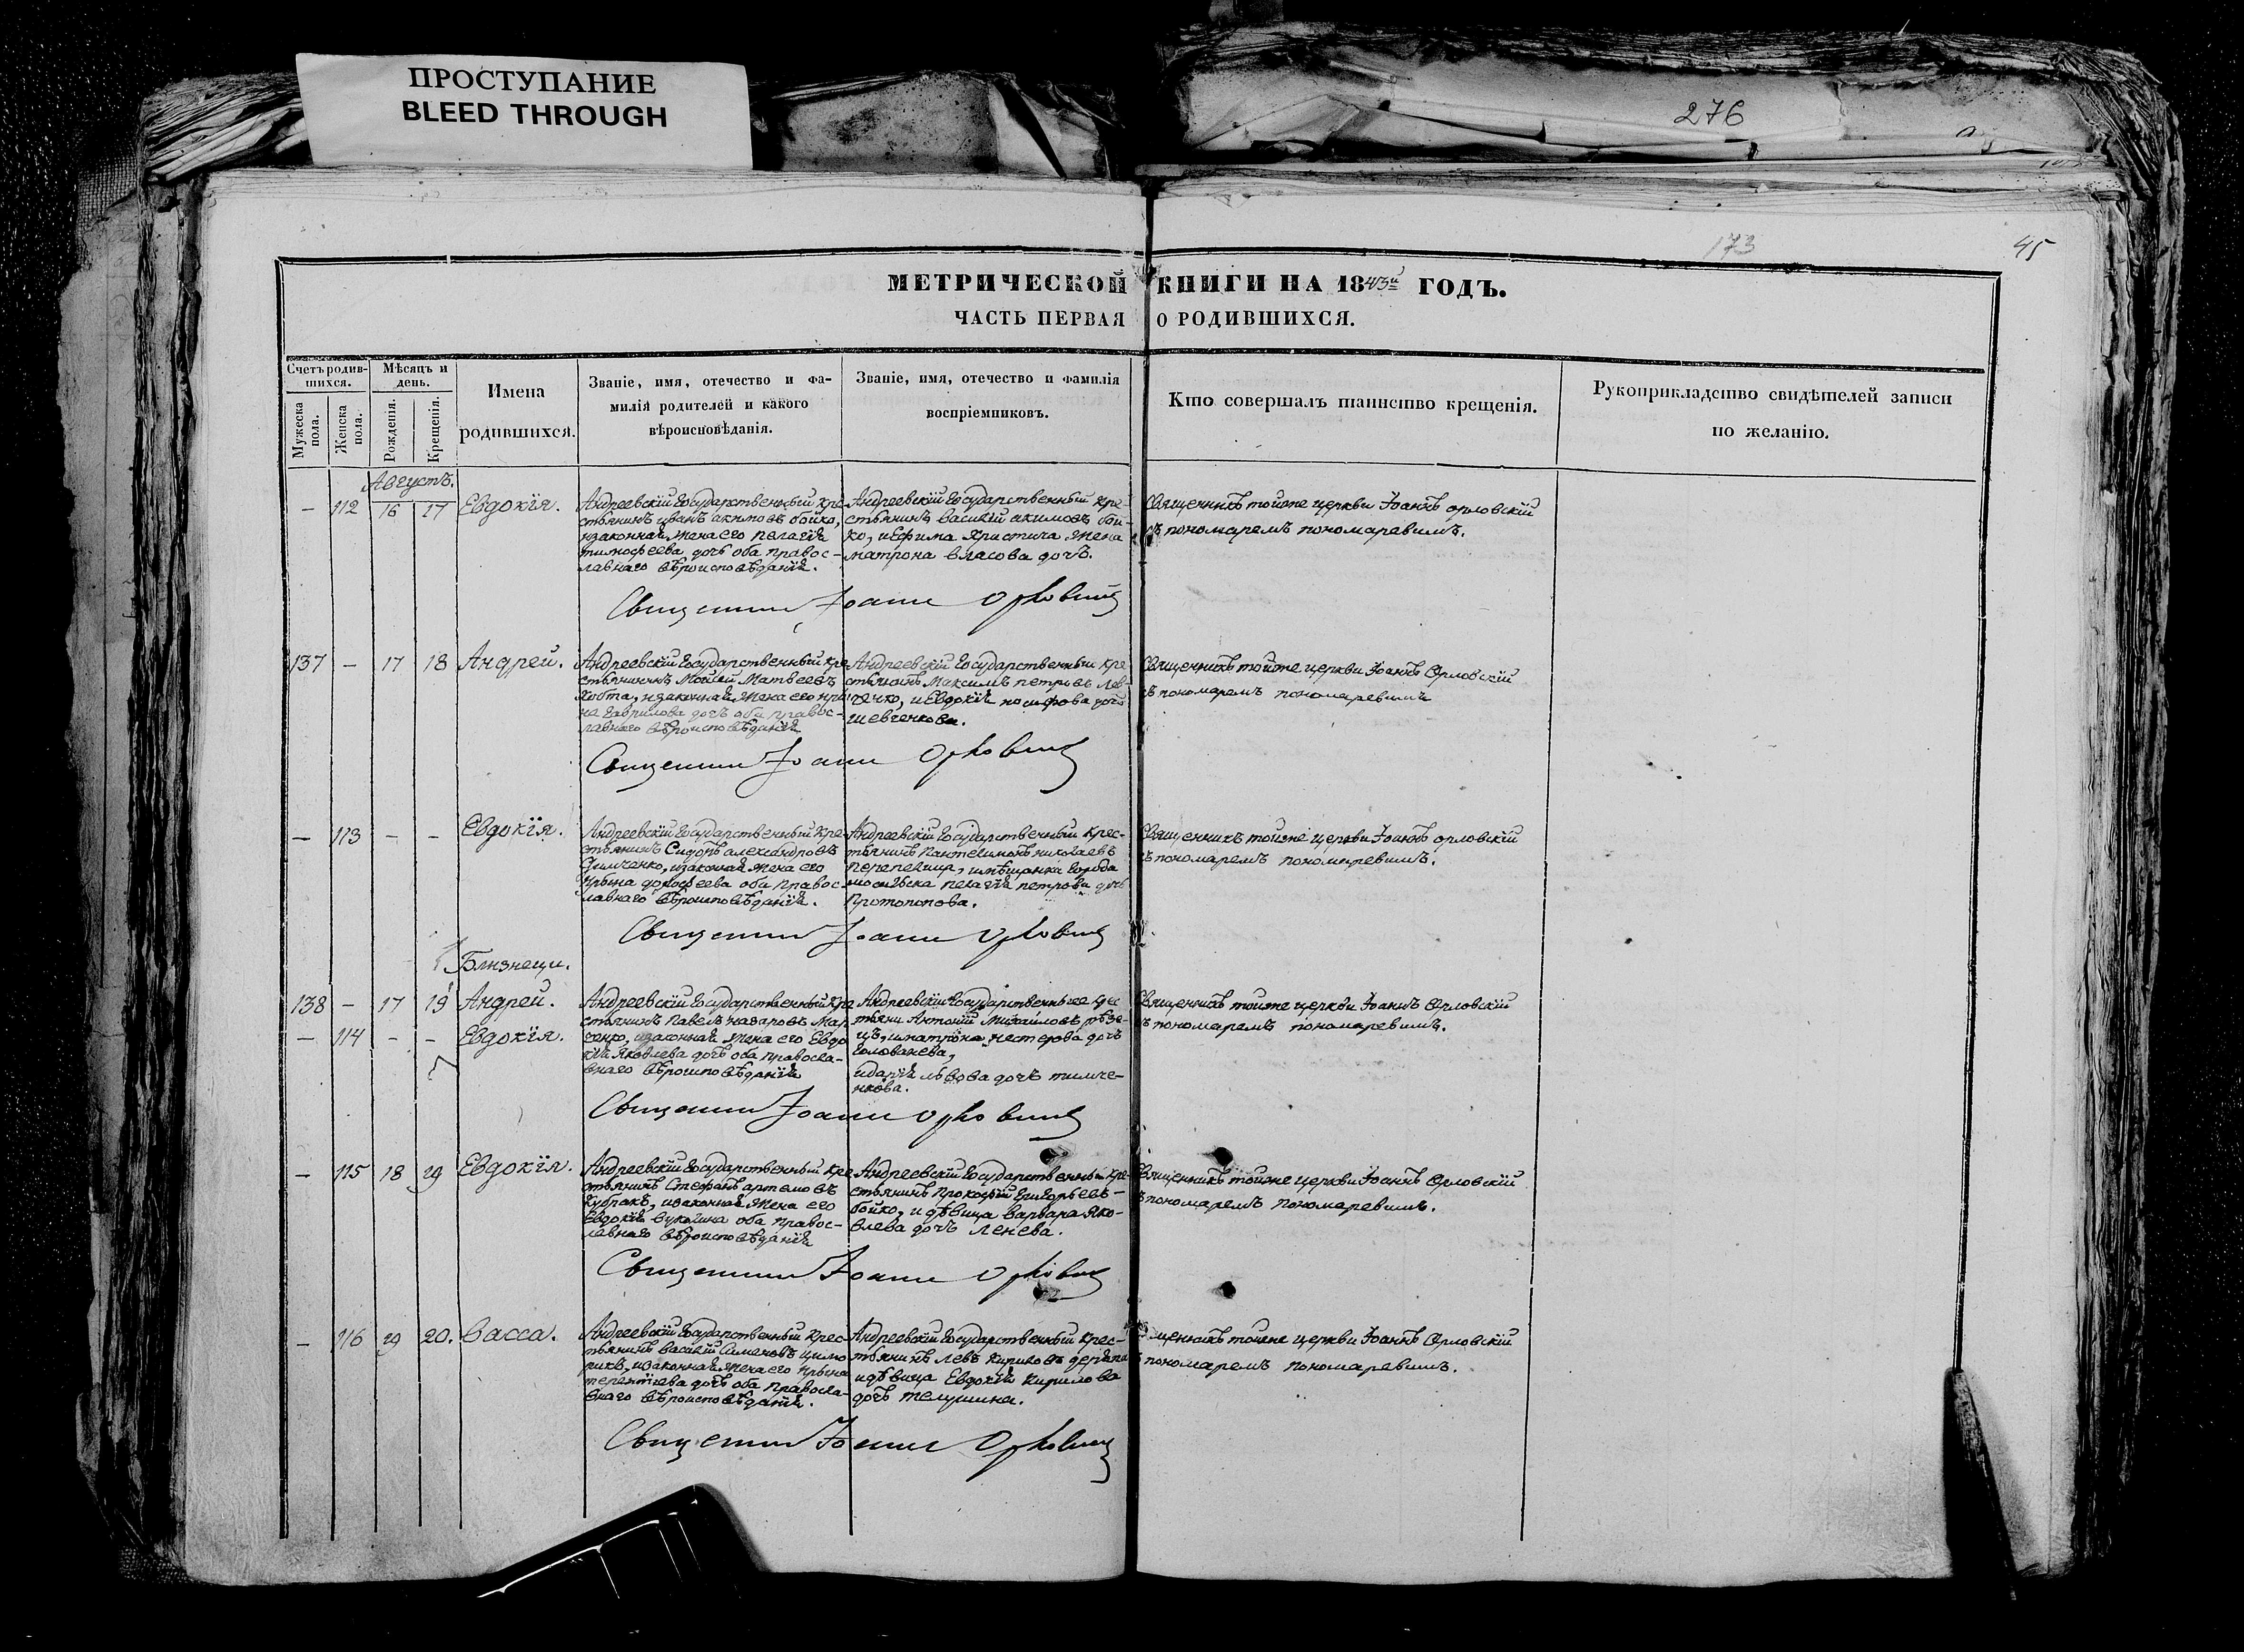 ПРОСТУПАНИЕ
BLEED THROUGH
276
173
45
МЕТРИЧЕСКОЙ КНИГИ НА 1843й ГОДЪ.
ЧАСТЬ ПЕРВАЯ О РОДИВШИХСЯ.
Счетъ родив-
шихся.
Мужеска пола.
Женска пола.
Мѣсяцъ и
день.
Рожденія.
Крещенія.
Имена
родившихся.
Званіе, имя, отечество и фа-
милія родителей и какого
вѣроисповѣданія.
Званіе, имя, отечество и фамилія
воспріемниковъ.
Кто совершалъ таинство крещенія.
Рукоприкладство свидѣтелей записи
по желанію.
Августъ.
— 112 16 17 Евдокія.
Андреевскій Государственный кре-
стьянинъ иванъ акимовъ бойко,
изаконная жена его пелагія
тимофеева дочь оба правос-
лавнаго вѣроисповѣданія.
Андреевскій Государственный кре-
стьянинъ василій акимовъ бой-
ко, и Ефима Христича жена
матрона власова дочь.
Священникъ тойже церкви Іоаннъ орловскій
съ пономаремъ пономаревимъ.
Священникъ Іоаннъ Орловскій
137 — 17 18 Андрей.
Андреевскій Государственный кре
стьянинъ Моисей Матвеевъ
Хобта, изаконная жена его ири
на Гаврилова дочь оба правос-
лавнаго вѣроисповѣданія
Андреевскій Государственный кре
стьянинъ Максимъ петровъ Лев-
ченко, и Евдокія иосифова дочь
шевченкова.
Священникъ тойже церкви Іоаннъ Орловскій
съ пономаремъ пономаревимъ
Священникъ Іоаннъ Орловскій
— 113 — — Евдокія.
Андреевскій Государственный кре
стьянинъ Сидоръ александровъ
изаконная жена его
Ирына дорофеева оба правос
лавнаго вѣроисповѣданія.
Андреевскій Государственный крес-
тьянинъ Пантелимонъ николаевъ
перепелица, имѣщанка города
пелагія петрова дочь
Протопопова.
Священникъ тойже церкви Іоаннъ орловскій
съ пономаремъ пономаревимъ.
Священникъ Іоаннъ Орловскій
Близнецы.
138 — 17 19 Андрей.
— 114 — — Евдокія.
Андреевскій Государственный кре
стьянинъ Павелъ назаровъ Мар
ченко, изаконная жена его Евдо
кія Яковлева дочь оба правосла-
внаго вѣроисповѣданія
Андреевскій Государственные крес
тьяни Антоній Михайловъ рѣзе-
цъ, иматрона нестерова дочь
Голованева,
идарія львова дочь тимче-
нкова.
Священникъ тойже церкви Іоаннъ Орловскій
съ пономаремъ пономаревимъ.
Священникъ Іоаннъ Орловскій
— 115 18 19 Евдокія.
Андреевскій Государственный кре
стьянинъ Стефанъ артемовъ
Кубракъ, изаконная жена его
Евдокія вукулина оба правос-
лавнаго вѣроисповѣданія
Андреевскій Государственный кре-
стьянинъ прокофій Григорьевъ
бойко, и дѣвица варвара Яко-
влева дочь Ленева.
Священникъ тойже церкви Іоаннъ Орловскій
съ пономаремъ пономаревимъ.
Священникъ Іоаннъ Орловскій
— 116 19 20. Васса.
Андреевскій Государственный крес-
тьянинъ василій Сименовъ
изаконная жена его Ирына
терентіева дочь оба правосла-
внаго вѣроисповѣданія.
Андреевскій Государственный крес-
тьянинъ Левъ Кириловъ
идѣвица Евдокія Кирилова
дочь телушина.
Священникъ тойже церкви Іоаннъ Орловскій
съ пономаремъ пономаревимъ.
Священникъ Іоаннъ Орловскій